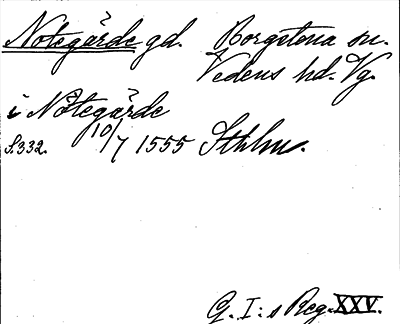 Notegärde gd. Borgstena sn.
Vedens hd. Vg.
i Nötegärde
S.332. 10/7 1555 Sthlm.
G. I:s Reg. XXV.